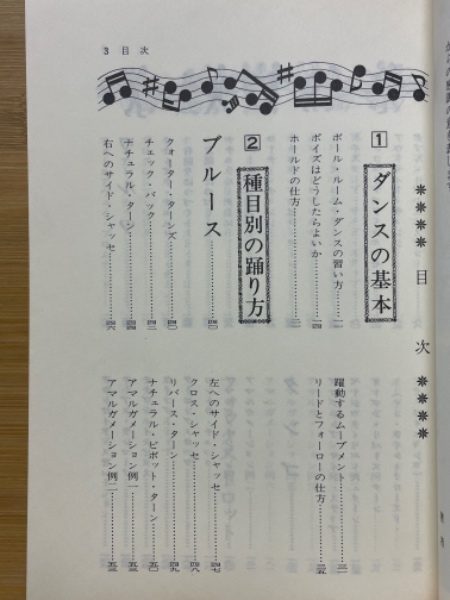 3 目次
＊＊＊＊ 目次 ＊＊＊＊
1 ダンスの基本
ボール・ルーム・ダンスの習い方
ポイズはどうしたらよいか
ホールドの仕方
躍動するムーブメント
リードとフォローの仕方
2 種目別の踊り方
ブルース
クォーター・ターンズ
チェック・バック
ナチュラル・ターン
右へのサイド・シャッセ
左へのサイド・シャッセ
クロス・シャッセ
リバース・ターン
ナチュラル・ピボット・ターン
アマルガメーション例一
アマルガメーション例二